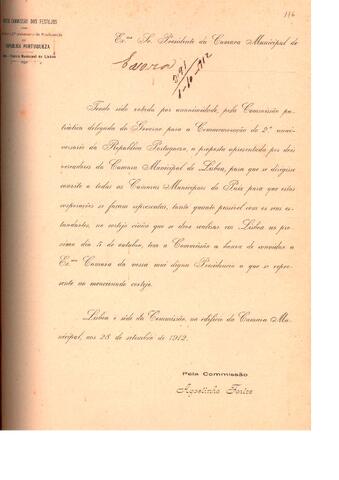 COMISSÃO DOS FESTEJOS
REPUBLICA PORTUGUEZA
Municipal de Lisboa
116
Ex.mo Sr. Presidente da Camara Municipal de
Evora
391
1-10-912
Tendo sido votada por unanimidade, pela Commissão pa-
triotica delegada do Governo para a Comemoração do 2.º anni-
versario da Republica Portuguesa, a proposta apresentada por dois
vereadores da Camara Municipal de Lisboa, para que se dirigisse
convite a todas as Camaras Municipaes do Paiz para que estas
corporações se façam representar, tanto quanto possivel com os seus es-
tandartes, no cortejo civico que se deve realisar em Lisboa no pro-
ximo dia 5 de outubro, tem a Commissão a honra de convidar a
Ex.ma Camara da vossa mui digna Presidencia a que se repre-
sente no mencionado cortejo.
Lisboa e séde da Commissão, no edificio da Camara Mu-
nicipal, aos 28 de setembro de 1912.
Pela Commissão
Agostinho Fortes